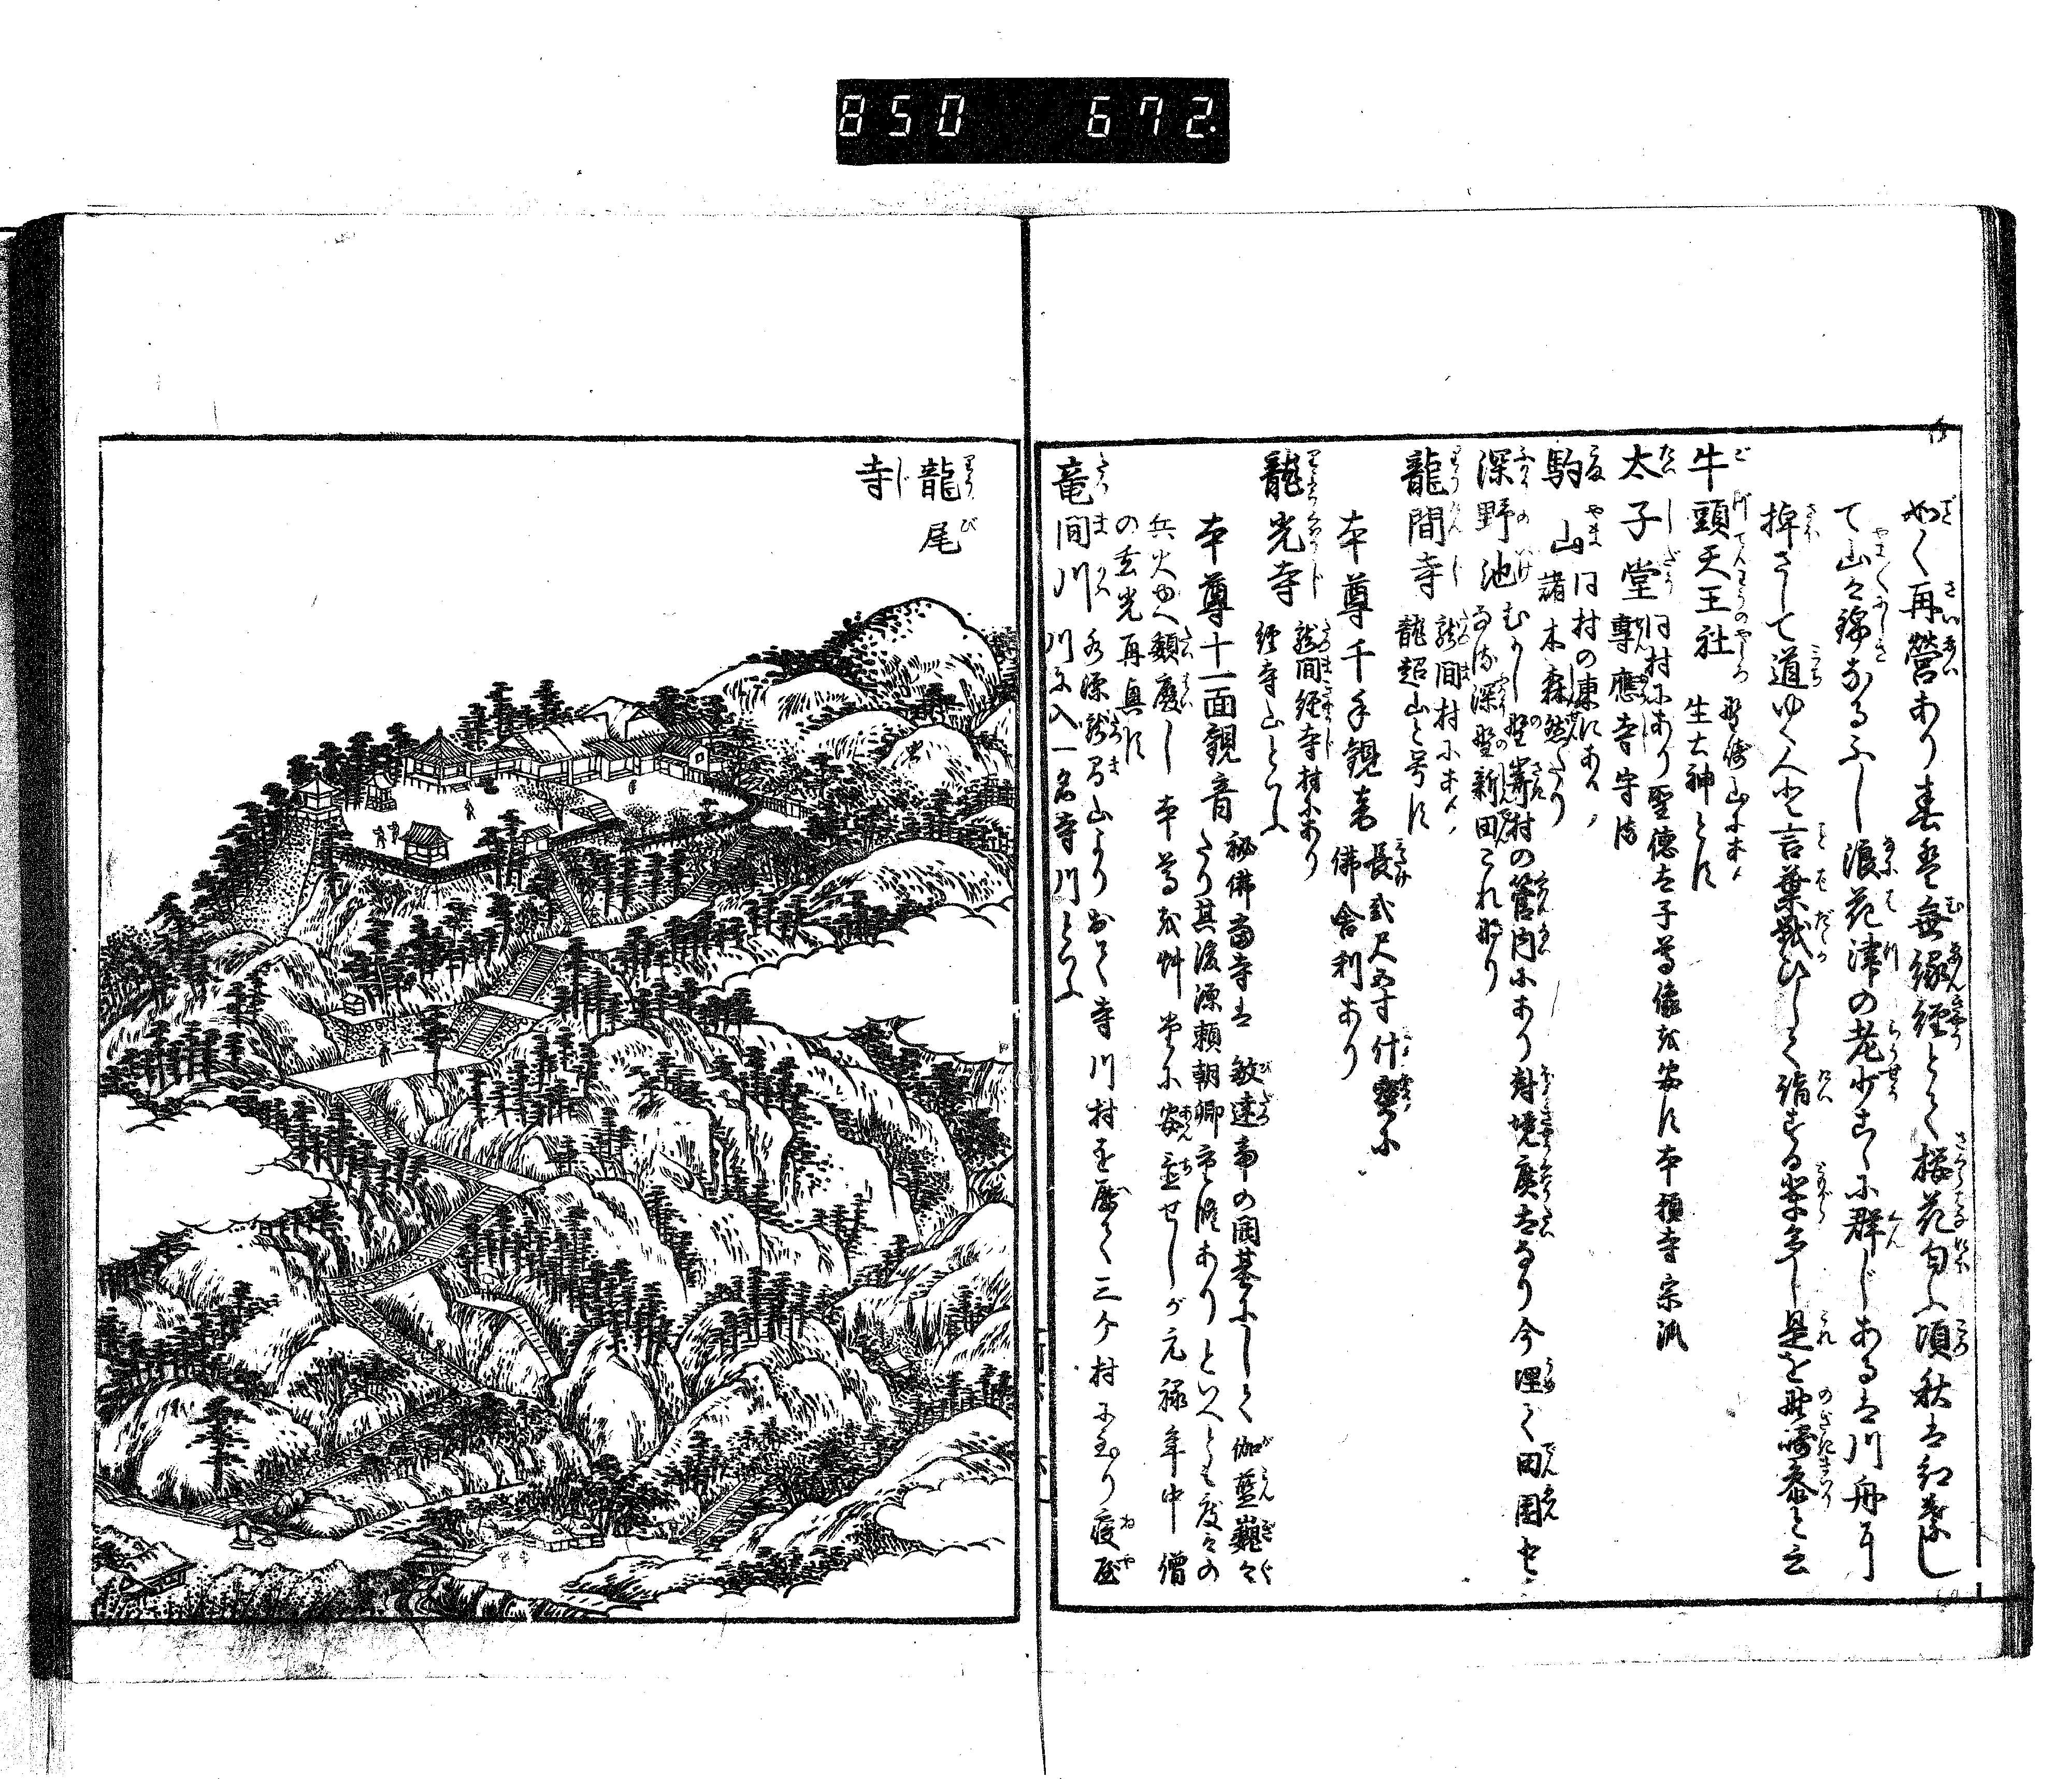 850 672.
如く再営あり春は無縁経とて桜花匂ふ頃秋は紅葉し
て山々錦なるふし浪花津の老少こゝに群じあるは川舟に
棹さして道ゆく人と言葉戦ひして詣する輩多し是を野崎参と云
牛頭天王社 野崎山にあり
生土神とす
太子堂 同村にあり聖徳太子尊像を安す本願寺宗派
専應寺守る
駒山 同村の東にあり
諸木森然たり
深野池 むかし野崎村の管内にあり封境廣大なり今埋て田圃とす
深野新田これ也
龍間寺 龍間村にあり
龍超山と号す
本尊千手観音 長弐尺五寸什宝に
佛舎利あり
龍光寺 龍間経寺村にあり
経寺山といふ
本尊十一面観音 秘佛當寺は敏達帝の開基にして伽藍巍々
たり其後源頼朝卿重修ありといへども度々の
兵火ゆへ頽廃し本尊を艸堂に安置せしが元禄年中僧
の玄光再興す
竜間川 水源龍間山より出て寺川村を歴て三ケ村に至り寝屋
川に入一名寺川といふ
龍尾
寺